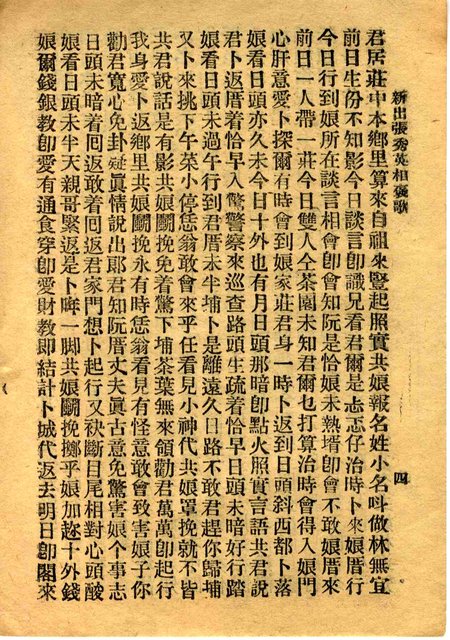 新出張秀英相褒歌
四
君居莊中本鄉里算來自祖來豎起照實共娘報名姓小名呌做林無宜
前日生份不知影今日談言卽識兄看君爾是忐忑仔治時卜來娘厝行
今日行到娘所在談言相會卽會知阮是恰娘未熟壻卽會不敢娘厝來
前日一人帶一莊今日雙人仝茶園未知君爾乜打算治時會得入娘門
心肝意愛卜探爾有時會到娘家莊君身一時卜返到日頭斜西都卜落
娘看日頭亦久未今日十外也有月日頭那暗卽點火照實言語共君說
君卜返厝着恰早入驚警察來巡查路頭生疏着恰早日頭未暗好行踏
娘看日頭未過午行到君厝未半埔卜是離遠久日路不敢君趕你歸埔
又卜來挑下午菜小停恁翁敢會來乎任看見小神代共娘罩挽就不皆
共君說話是有影共娘鬭挽免着驚下埔茶葉無來領勸君萬萬卽起行
我身愛卜返鄉里共娘鬭挽永有時恁翁看見有怪意敢會致害娘子你
勸君寬心免卦疑眞情說出郎君知阮厝丈夫眞古意免驚害娘个事志
日頭未暗着囘返敢着囘返君家門想卜起行又袂斷目尾相對心頭酸
娘看日頭未半天親哥緊返是卜哖一脚共娘鬭挽擲乎娘加趂十外錢
娘爾錢銀敎卽愛有通食穿卽愛財敎卽結計卜城代返去明日卽閣來